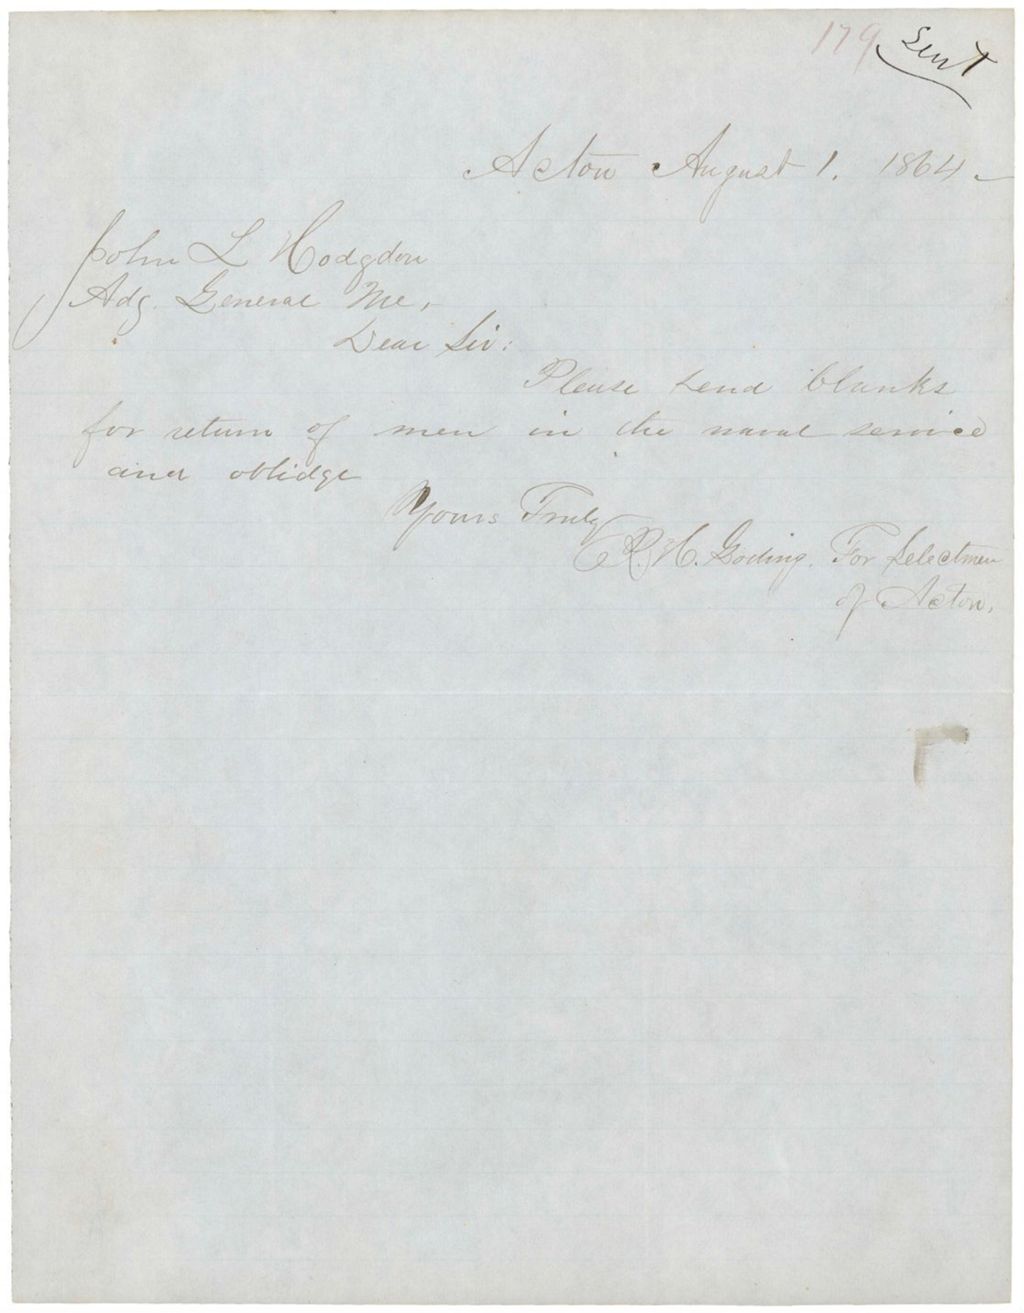 179 Sent
Acton August 1. 1864.
John L Hodgdon
Adg. General Me,
Dear Sir:
Please send blanks
for return of men in the naval service
and oblidge
Yours Truly
R. H. Goding. For Selectmen
of Acton.